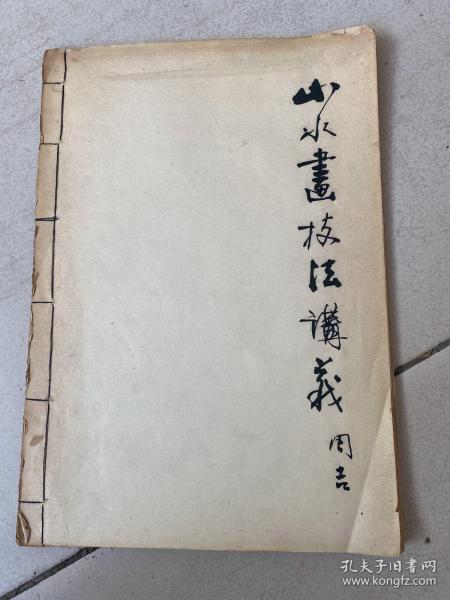 山水畫技法講義
周吉
孔夫子旧书网
www.kongfz.com